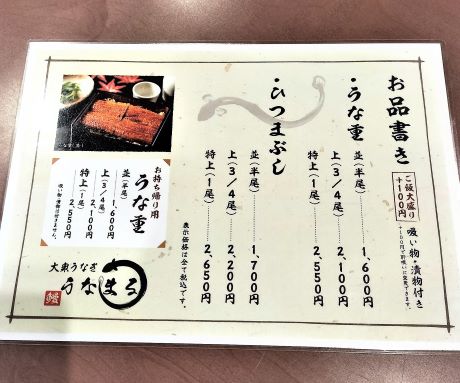 お品書き
ご飯大盛り
+100円
吸い物・漬物付き
・うな重
並(半尾) 1,600円
上(3/4尾) 2,100円
特上(1尾) 2,550円
・ひつまぶし
並(半尾) 1,700円
上(3/4尾) 2,200円
特上(1尾) 2,650円
表示価格は全て税込です。
お持ち帰り用
うな重
並(半尾) 1,600円
上(3/4尾) 2,100円
特上(1尾) 2,550円
吸い物は付きません。
大東うなぎ
うなまる